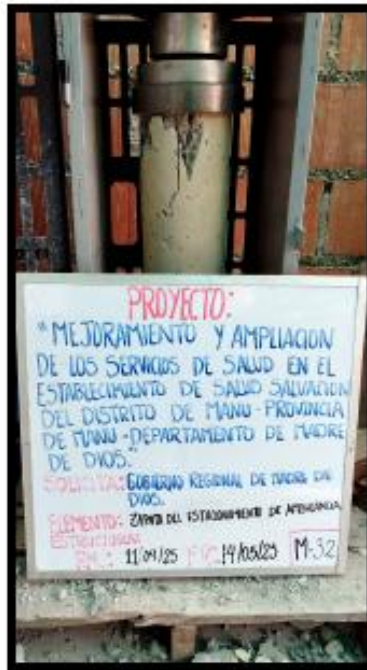 PROYECTO:
"MEJORAMIENTO Y AMPLIACION
DE LOS SERVICIOS DE SALUD EN EL
ESTABLECIMIENTO DE SALUD SALVACION
DEL DISTRITO DE MANU - PROVINCIA
DE MANU - DEPARTAMENTO DE MADRE
DE DIOS."
SOLICITA: GOBIERNO REGIONAL DE MADRE DE
DIOS.
ELEMENTO: ZAPATA DEL ESTACIONAMIENTO DE AMBULANCIA
ESTRUCTURAL
11/04/25 14/05/25 M-32